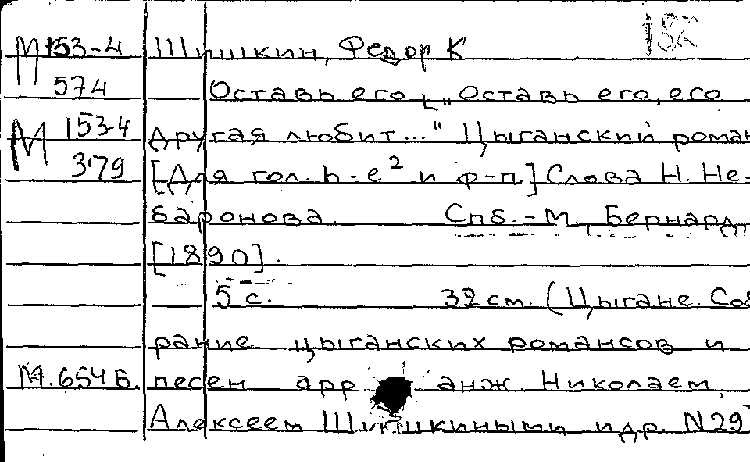 182
М 153-4 Шишкин, Федор К
574 Оставь его, „Оставь его, его
М 153-4 другая любит..." Цыганский роман
379 [Для гол. h-e² и ф-п.] Слова Н. Не-
баронова. Спб.-М, Бернард,
[1890].
5 с. 32 см. (Цыгане. Соб
рание цыганских романсов и
М. 654 Б. песен арр анж. Николаем,
Алексеем Шишкиными и др. N 29